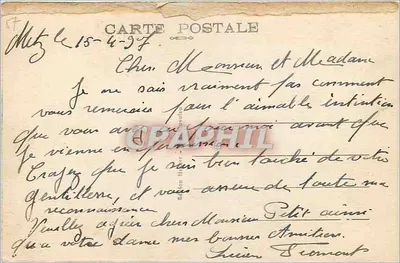 CARTE POSTALE
Metz le 15-4-37
Cher Monsieur et Madame
Je ne sais vraiment pas comment
vous remercier pour l'aimable intention
que vous pour moi avant que
je vienne en permission
CPAPHIL
Croyez que je suis bien touché de votre
gentillesse, et vous assure de toute ma
reconnaissance
Veuillez agréer cher Monsieur Petit ainsi
qu'a votre dame mes bonnes Amitiés.